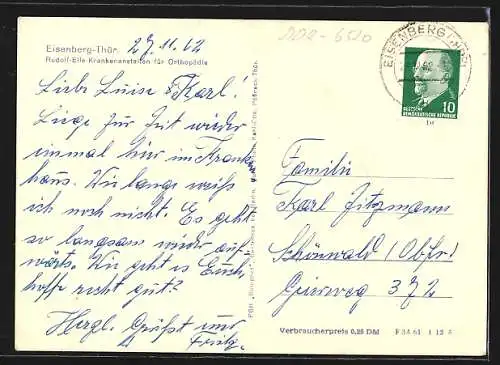 Eisenberg-Thür. 27.11.62
Rudolf-Elle Krankenanstalten für Orthopädie
Liebe Luise & Karl!
Liege zur Zeit wieder
einmal hier im Kranken
haus. Wie lange weiß
ich noch nicht. Es geht
so langsam wieder auf
wärts. Wie geht es Euch,
hoffe recht gut?
Herzl. Grüßt nur
Fritz.
DDR-6510
EISENBERG (THÜR)
10
DEUTSCHE
DEMOKRATISCHE REPUBLIK
Familie
Karl Jitzmann
Schönwald (Obfr)
Grünweg 372
Verbraucherpreis 0,25 DM